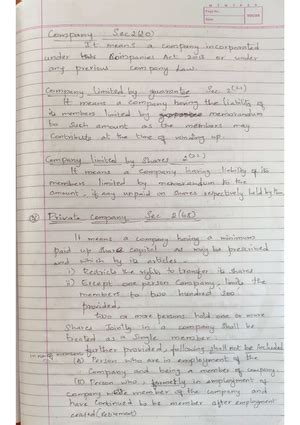 Company Sec 2(20)
It means a company incorporated
under the Companies Act 2013 or under
any previous Company Law.
Company limited by guarantee Sec 2(21)
It means a company having the liability of
its members limited by memorandum
to such amount as the members may
Contribute at the time of winding up.
Company limited by Shares 2(22)
It means a Company having liability of its
members limited by memorandum to the
amount, if any unpaid on shares respectively held by them
Private Company Sec 2(68)
It means a company having a minimum
paid up share capital as may be prescribed
and which by its articles -
i) Restricts the rights to transfer its shares
ii) Except one person Company, limits the
members to two hundred 200.
provided,
two or more persons hold one or more
Shares Jointly in a company shall be
treated as a Single member.
further provided, following shall not be included
(A) Person who are in employment of the
Company and being a member of company.
(B) Person who, formerly in employment of
company member of the company and
have continued to be member after employment
ceased